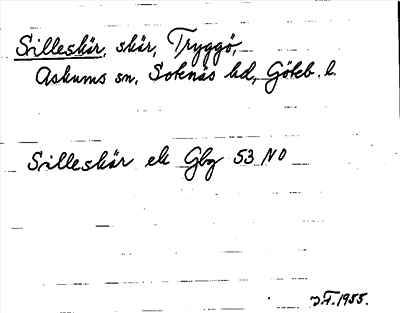 Svilleskär, skär, Tryggö,
Askums sn, Sotenäs hd, Göteb. l.
Svilleskär ek Gbg 53 NO
1955.